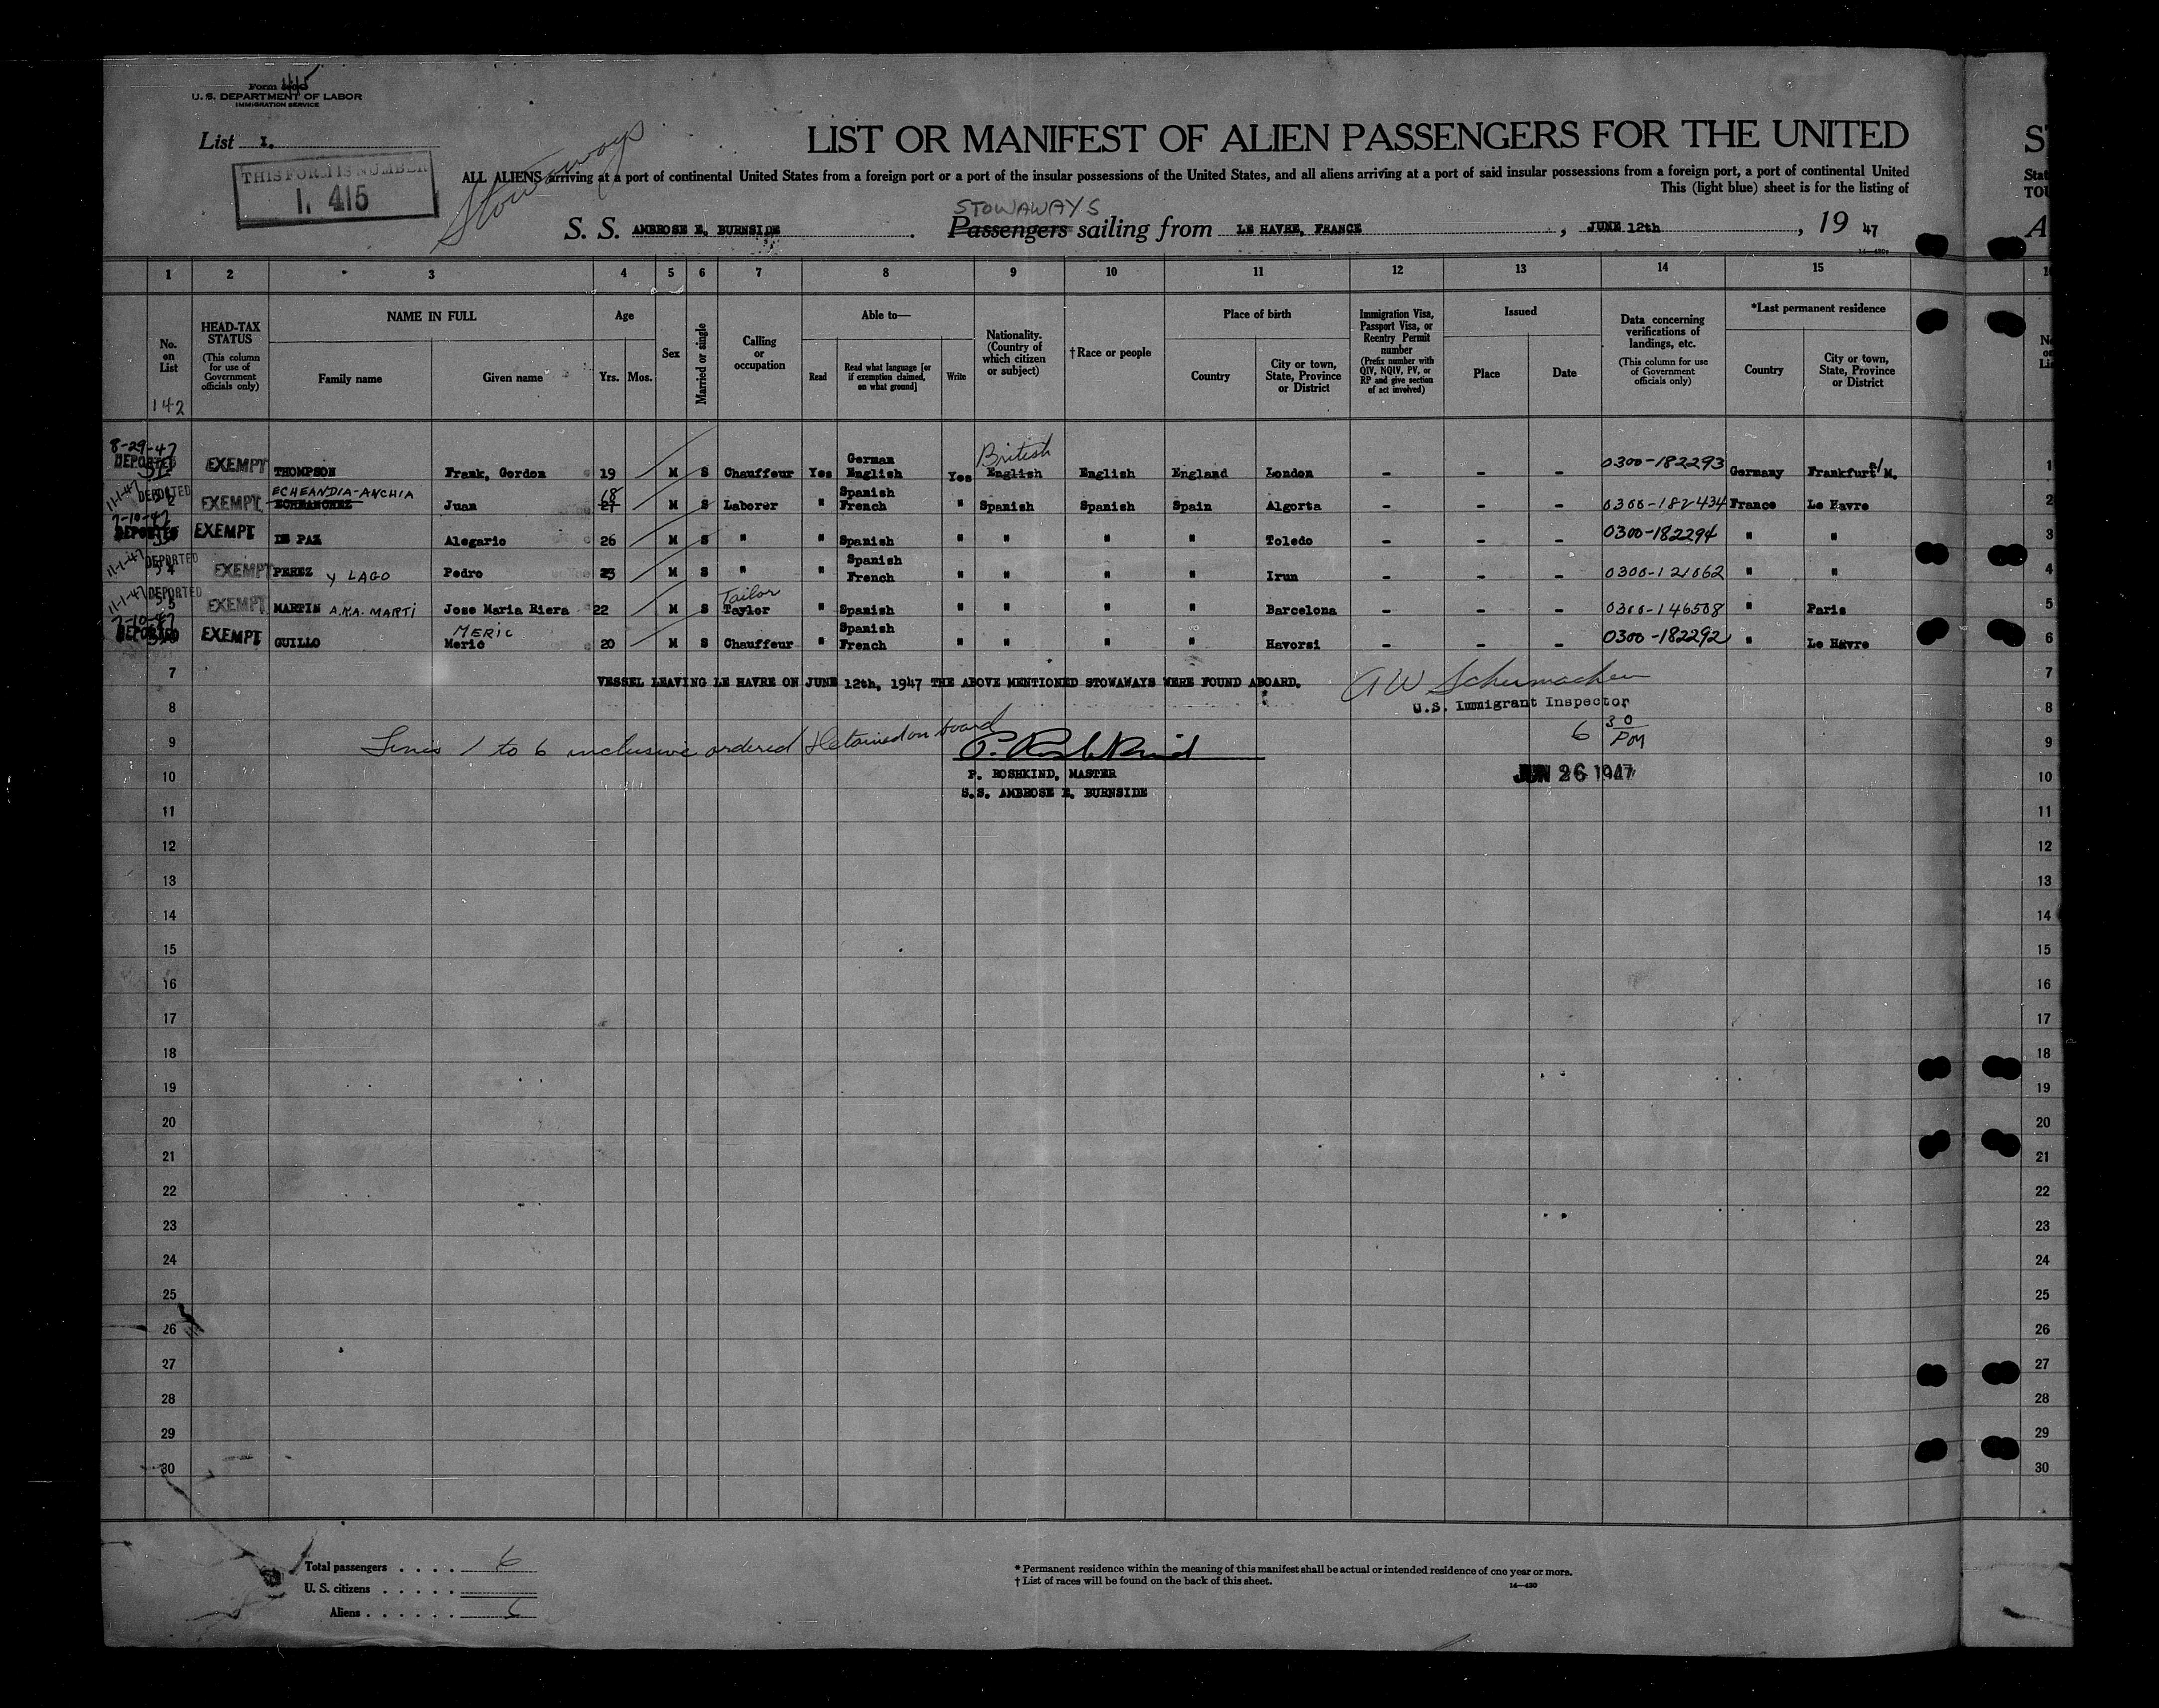 Form
U. S. DEPARTMENT OF LABOR
IMMIGRATION SERVICE
List 1.
THIS FORM IS NUMBER
I. 415
Stowaways
LIST OR MANIFEST OF ALIEN PASSENGERS FOR THE UNITED
ALL ALIENS arriving at a port of continental United States from a foreign port or a port of the insular possessions of the United States, and all aliens arriving at a port of said insular possessions from a foreign port, a port of continental United
This (light blue) sheet is for the listing of
STOWAWAYS
S. S. AMBROSE E. BURNSIDE . Passengers sailing from LE HAVRE, FRANCE , JUNE 12th , 19 47
1 2 3 4 5 6 7 8 9 10 11 12 13 14 15
No. on List
142
HEAD-TAX STATUS (This column for use of Government officials only)
NAME IN FULL
Family name Given name
Age
Yrs. Mos.
Sex
Married or single
Calling or occupation
Able to—
Read Read what language [or if exemption claimed, on what ground] Write
Nationality. (Country of which citizen or subject)
†Race or people
Place of birth
Country City or town, State, Province or District
Immigration Visa, Passport Visa, or Reentry Permit number (Prefix number with QIV, NQIV, PV, or RP and give section of act involved)
Issued
Place Date
Data concerning verifications of landings, etc. (This column for use of Government officials only)
*Last permanent residence
Country City or town, State, Province or District
8-29-47 DEPORTED EXEMPT THOMPSON Frank, Gordon 19 M S Chauffeur Yes German English Yes British English English England London - - - 0300-182293 Germany Frankfurt a/M. 1
11-1-47 DEPORTED 2 EXEMPT ECHEANDIA-ANCHIA Juan 18 27 M S Laborer " Spanish French " Spanish Spanish Spain Algorta - - - 0300-182434 France Le Havre 2
7-10-47 DEPORTED EXEMPT DE PAZ Alegario 26 M S " " Spanish " " " " Toledo - - - 0300-182294 " " 3
11-1-47 DEPORTED 4 EXEMPT PEREZ y LAGO Pedro 23 M S " " Spanish French " " " " Irun - - - 0300-121062 " " 4
11-1-47 DEPORTED 5 EXEMPT MARTIN A.K.A. MARTI Jose Maria Riera 22 M S Tailor Taylor " Spanish " " " " Barcelona - - - 0300-146508 " Paris 5
7-10-47 DEPORTED EXEMPT GUILLO MERIC Meric 20 M S Chauffeur " Spanish French " " " " Havorsi - - - 0300-182292 " Le Havre 6
7 VESSEL LEAVING LE HAVRE ON JUNE 12th, 1947 THE ABOVE MENTIONED STOWAWAYS WERE FOUND ABOARD. A W Schumacher 7
8 U.S. Immigrant Inspector 8
9 Lines 1 to 6 inclusive ordered detained on board P. Roshkind 6 30 PM 9
10 P. ROSHKIND, MASTER JUN 26 1947 10
S.S. AMBROSE E. BURNSIDE
11 11
12 12
13 13
14 14
15 15
16 16
17 17
18 18
19 19
20 20
21 21
22 22
23 23
24 24
25 25
26 26
27 27
28 28
29 29
30 30
Total passengers . . . . 6
U. S. citizens . . . . .
Aliens . . . . . . 6
* Permanent residence within the meaning of this manifest shall be actual or intended residence of one year or more.
† List of races will be found on the back of this sheet.
14—430